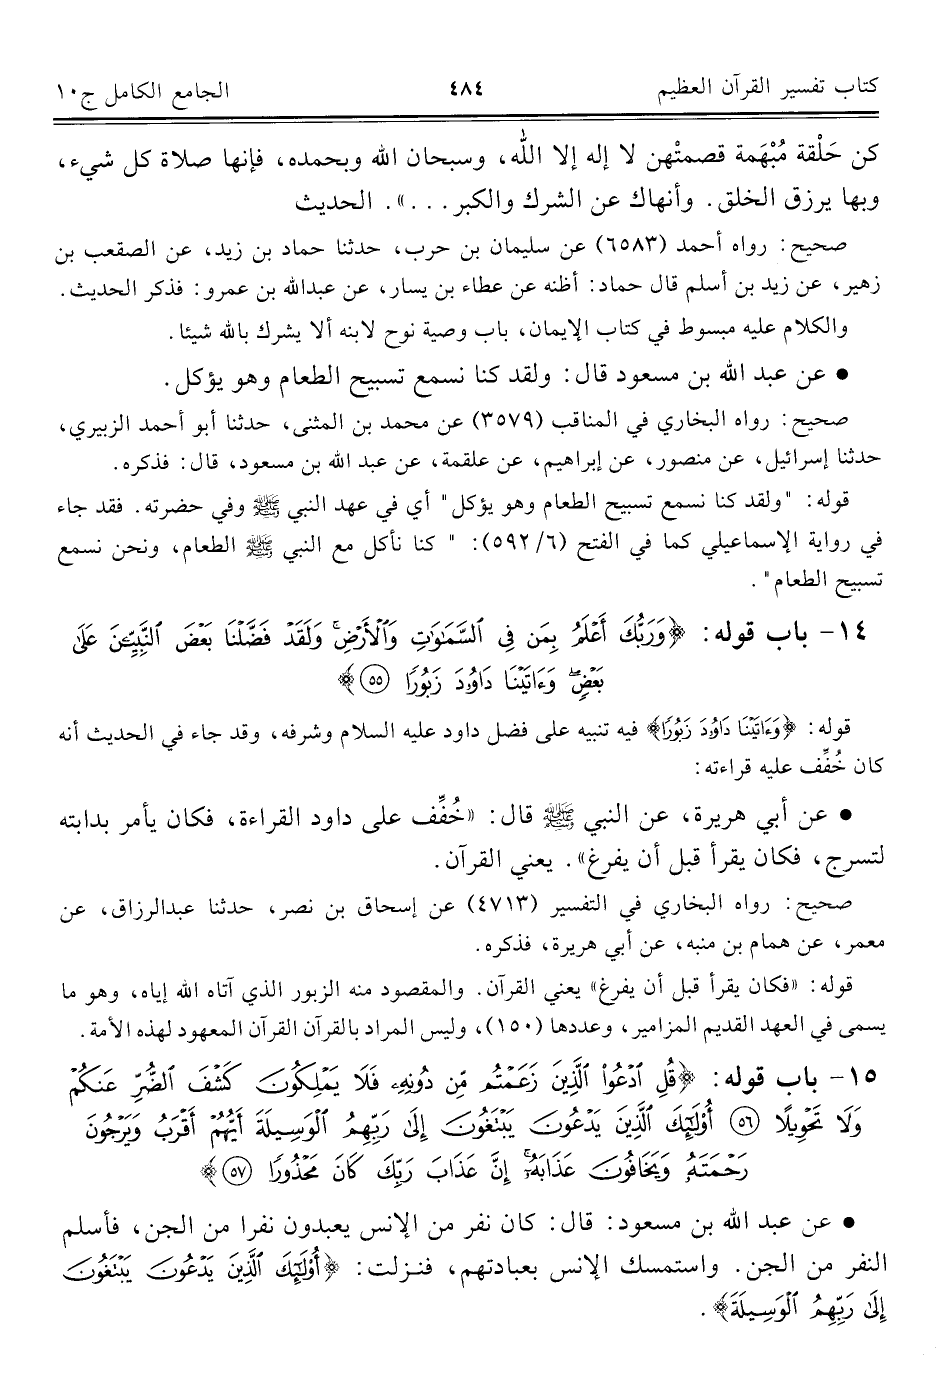 كتاب تفسير القرآن العظيم ٤٨٤ الجامع الكامل ج١٠
كن حَلْقة مُبْهَمة قصمتْهن لا إله إلا اللّٰه، وسبحان الله وبحمده، فإنها صلاة كل شيء،
وبها يرزق الخلق. وأنهاك عن الشرك والكبر...». الحديث
صحيح: رواه أحمد (٦٥٨٣) عن سليمان بن حرب، حدثنا حماد بن زيد، عن الصقعب بن
زهير، عن زيد بن أسلم قال حماد: أظنه عن عطاء بن يسار، عن عبدالله بن عمرو: فذكر الحديث.
والكلام عليه مبسوط في كتاب الإيمان، باب وصية نوح لابنه ألا يشرك بالله شيئا.
• عن عبد الله بن مسعود قال: ولقد كنا نسمع تسبيح الطعام وهو يؤكل.
صحيح: رواه البخاري في المناقب (٣٥٧٩) عن محمد بن المثنى، حدثنا أبو أحمد الزبيري،
حدثنا إسرائيل، عن منصور، عن إبراهيم، عن علقمة، عن عبد الله بن مسعود، قال: فذكره.
قوله: "ولقد كنا نسمع تسبيح الطعام وهو يؤكل" أي في عهد النبي ﷺ وفي حضرته. فقد جاء
في رواية الإسماعيلي كما في الفتح (٥٩٢/٦): " كنا نأكل مع النبي ﷺ الطعام، ونحن نسمع
تسبيح الطعام".
١٤- باب قوله: ﴿وَرَبُّكَ أَعْلَمُ بِمَن فِى ٱلسَّمَٰوَٰتِ وَٱلْأَرْضِ ۗ وَلَقَدْ فَضَّلْنَا بَعْضَ ٱلنَّبِيِّـۧنَ عَلَىٰ
بَعْضٍ ۖ وَءَاتَيْنَا دَاوُۥدَ زَبُورًا (٥٥)﴾
قوله: ﴿وَءَاتَيْنَا دَاوُۥدَ زَبُورًا﴾ فيه تنبيه على فضل داود عليه السلام وشرفه، وقد جاء في الحديث أنه
كان خُفِّف عليه قراءته:
• عن أبي هريرة، عن النبي ﷺ قال: «خُفِّف على داود القراءة، فكان يأمر بدابته
لتسرج، فكان يقرأ قبل أن يفرغ». يعني القرآن.
صحيح: رواه البخاري في التفسير (٤٧١٣) عن إسحاق بن نصر، حدثنا عبدالرزاق، عن
معمر، عن همام بن منبه، عن أبي هريرة، فذكره.
قوله: «فكان يقرأ قبل أن يفرغ» يعني القرآن. والمقصود منه الزبور الذي آتاه الله إياه، وهو ما
يسمى في العهد القديم المزامير، وعددها (١٥٠)، وليس المراد بالقرآن القرآن المعهود لهذه الأمة.
١٥- باب قوله: ﴿قُلِ ٱدْعُوا۟ ٱلَّذِينَ زَعَمْتُم مِّن دُونِهِۦ فَلَا يَمْلِكُونَ كَشْفَ ٱلضُّرِّ عَنكُمْ
وَلَا تَحْوِيلًا (٥٦) أُو۟لَٰٓئِكَ ٱلَّذِينَ يَدْعُونَ يَبْتَغُونَ إِلَىٰ رَبِّهِمُ ٱلْوَسِيلَةَ أَيُّهُمْ أَقْرَبُ وَيَرْجُونَ
رَحْمَتَهُۥ وَيَخَافُونَ عَذَابَهُۥٓ ۚ إِنَّ عَذَابَ رَبِّكَ كَانَ مَحْذُورًا (٥٧)﴾
• عن عبد الله بن مسعود: قال: كان نفر من الإنس يعبدون نفرا من الجن، فأسلم
النفر من الجن. واستمسك الإنس بعبادتهم، فنـزلت: ﴿أُو۟لَٰٓئِكَ ٱلَّذِينَ يَدْعُونَ يَبْتَغُونَ
إِلَىٰ رَبِّهِمُ ٱلْوَسِيلَةَ﴾.